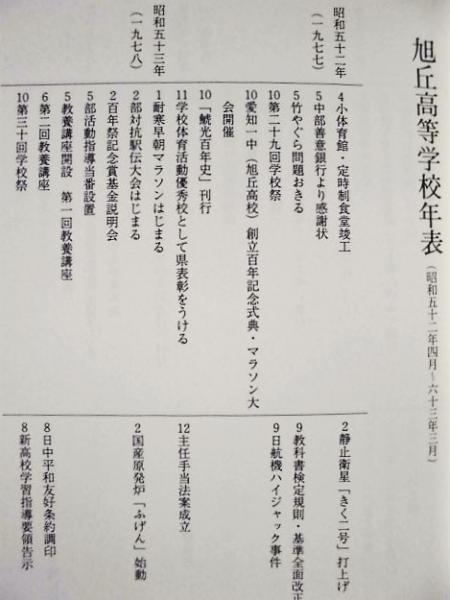 旭丘高等学校年表
（昭和五十二年四月～六十三年三月）
昭和五十二年
（一九七七）
4 小体育館・定時制食堂竣工
5 中部善意銀行より感謝状
5 竹やぐら問題おきる
10 第二十九回学校祭
10 愛知一中（旭丘高校）創立百年記念式典・マラソン大
会開催
10 「鯱光百年史」刊行
11 学校体育活動優秀校として県表彰をうける
昭和五十三年
（一九七八）
1 耐寒早朝マラソンはじまる
2 部対抗駅伝大会はじまる
2 百年祭記念賞基金説明会
5 部活動指導当番設置
5 教養講座開設　第一回教養講座
6 第二回教養講座
10 第三十回学校祭
2 静止衛星「きく二号」打上げ
9 教科書検定規則・基準全面改正
9 日航機ハイジャック事件
12 主任手当法案成立
2 国産原発炉「ふげん」始動
8 日中平和友好条約調印
8 新高校学習指導要領告示